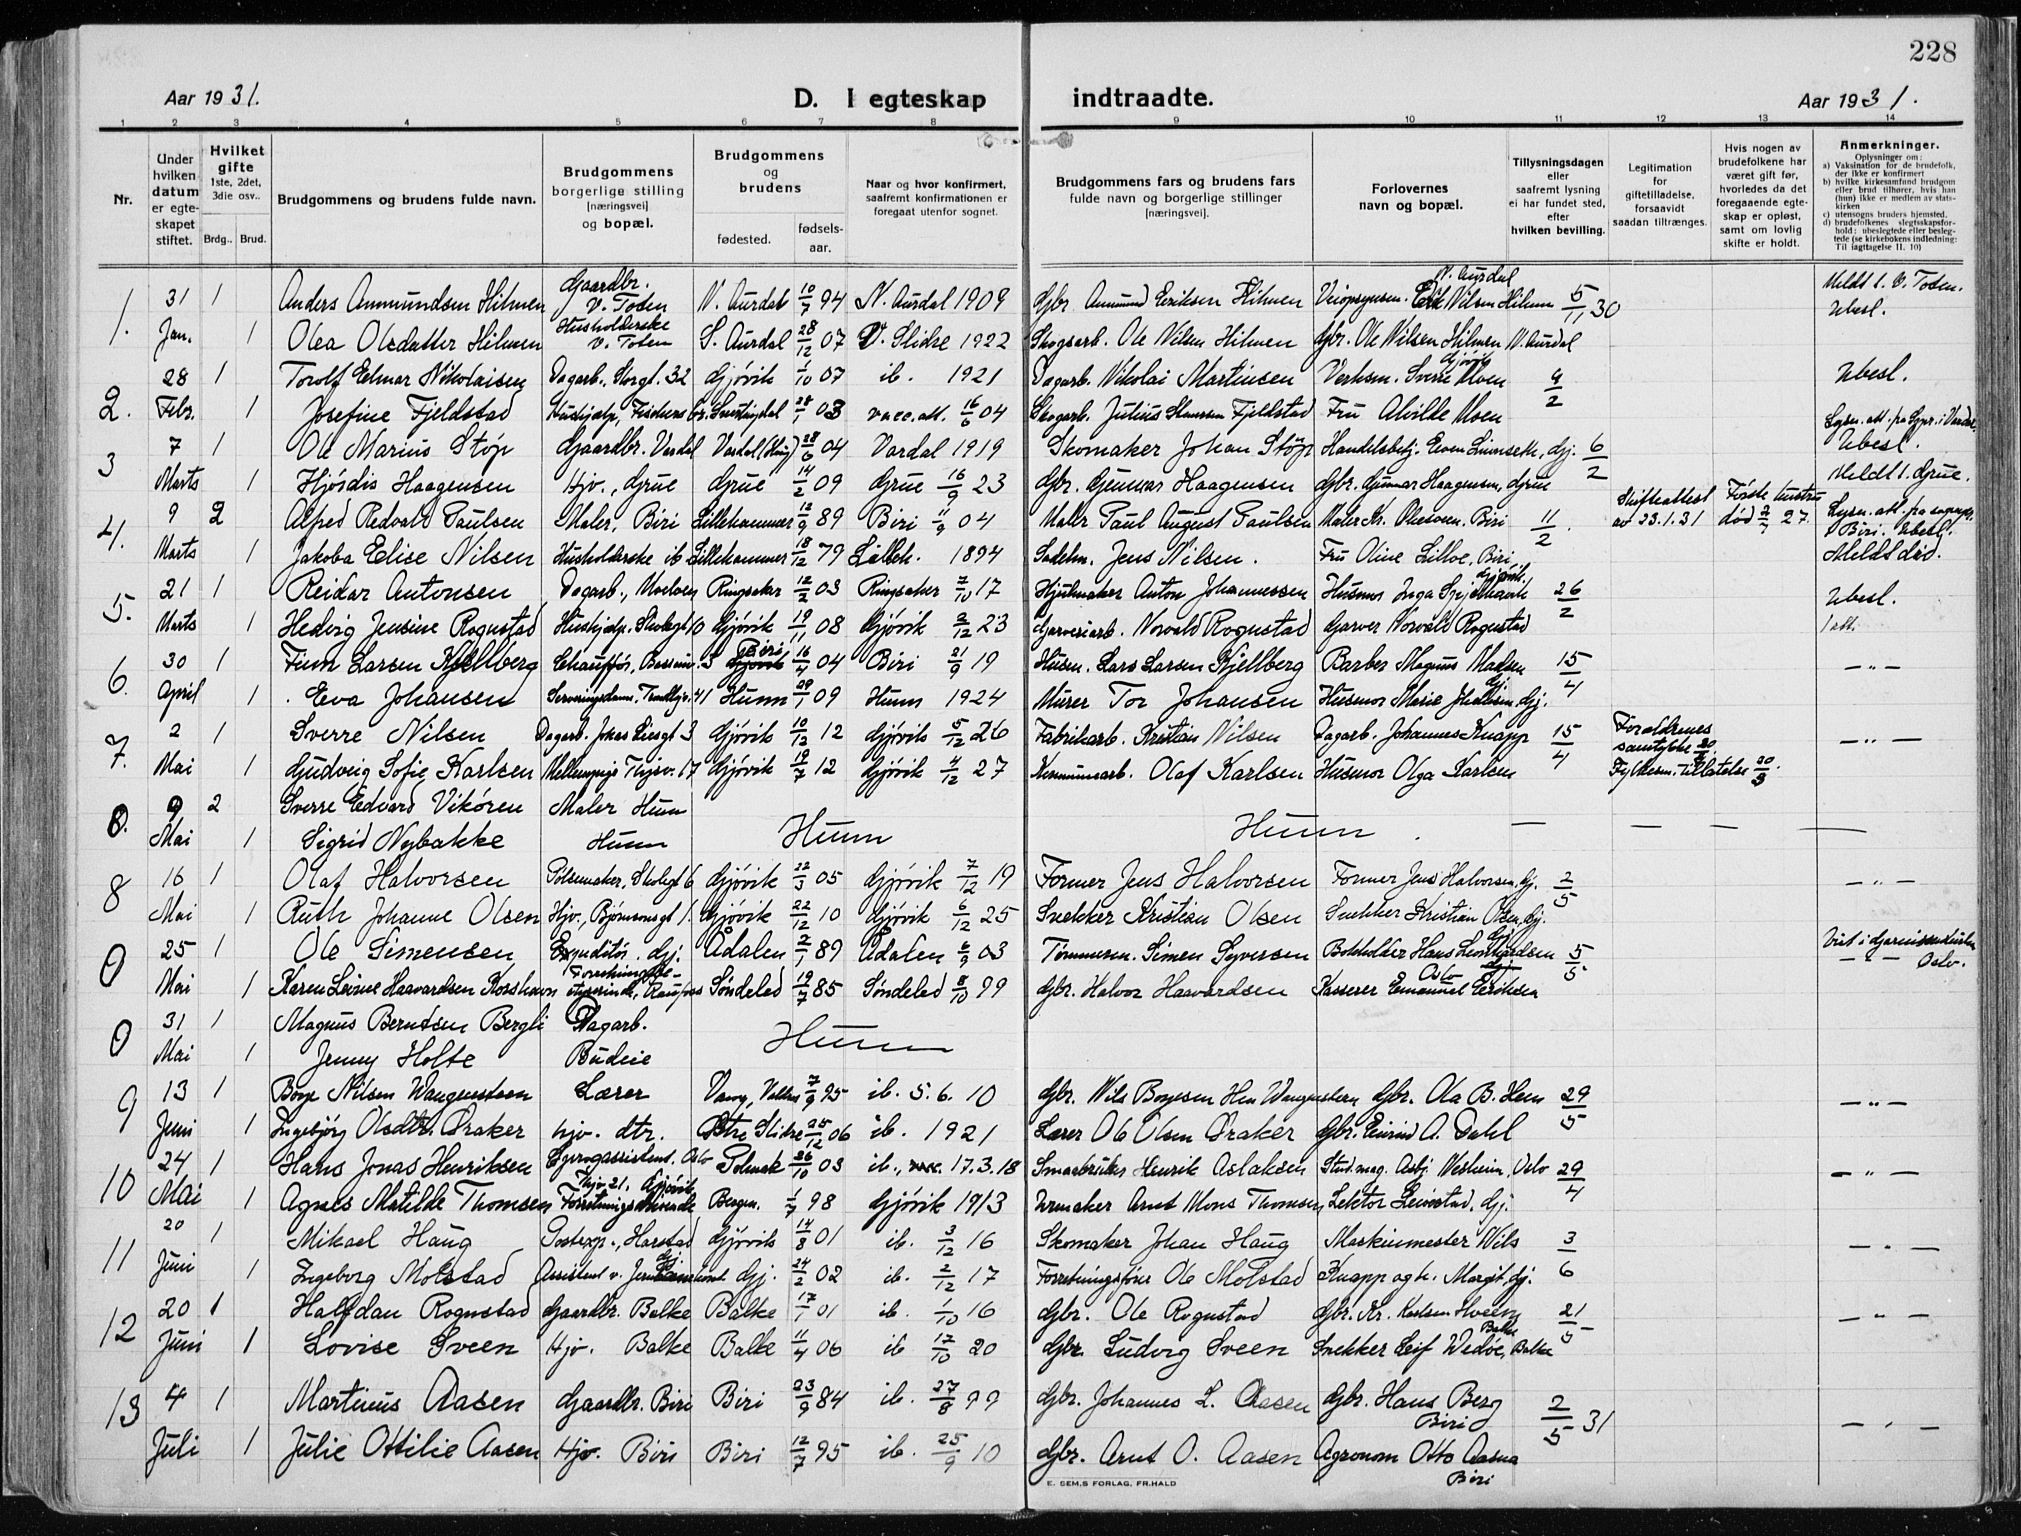 228
Aar 1931.
D. I egteskap indtraadte.
Aar 1931.
1 2 3 4 5 6 7 8 9 10 11 12 13 14
Nr.
Under hvilken datum er egteskapet stiftet.
Hvilket gifte 1ste, 2det, 3die osv..
Brdg.. Brud.
Brudgommens og brudens fulde navn.
Brudgommens borgerlige stilling [næringsvei] og bopæl.
Brudgommens og brudens
fødested.
fødselsaar.
Naar og hvor konfirmert, saafremt konfirmationen er foregaat utenfor sognet.
Brudgommens fars og brudens fars fulde navn og borgerlige stillinger [næringsvei].
Forlovernes navn og bopæl.
Tillysningsdagen eller saafremt lysning ei har fundet sted, efter hvilken bevilling.
Legitimation for giftetilladelse, forsaavidt saadan tiltrænges.
Hvis nogen av brudefolkene har været gift før, hvorledes da det foregaaende egteskap er opløst, samt om lovlig skifte er holdt.
Anmerkninger.
Oplysninger om:
a) Vaksination for de brudefolk, der ikke er konfirmert
b) hvilke kirkesamfund brudgom eller brud tilhører, hvis han (hun) ikke er medlem av statskirken
c) utensogns bruders hjemsted.
d) brudefolkenes slegtsskapsforhold: ubeslegtede eller beslegtede (se kirkebokens indledning: Til iagttagelse 11. 10)
1. 31 1 Anders Anmundsen Hilmen Gaardbr. V. Toten N. Aurdal 10/7 94 N. Aurdal 1909 Gbr. Anmund Eriksen Hilmen Erik Nilsen Hilmen N. Aurdal 5/11 30 Meldt s. V. Toten. Ubesl.
Jan. 1 Olea Olsdatter Hilmen Husholderske V. Toten S. Aurdal 28/12 07 V. Slidre 1922 Skogsarb. Ole Nilsen Hilmen Gbr. Ole Nilsen Hilmen N. Aurdal
2. 28 1 Torolf Elmar Nikolaisen Dagarb., Storgt. 32 Gjøvik 1/10 07 ib. 1921 Dagarb. Nikolai Martinsen Verksm. Sverre Moen Gjøvik 9/2 Ubesl.
Febr. 1 Josefine Fjeldstad Snertingdal 28/1 03 vacc. att. 16/6 04 Skogarb. Julius Hansen Fjeldstad Fru Alvilde Moen
3 7 1 Ole Marius Støp Gaardbr. Vardal Vardal (Hunn) 28/6 04 Vardal 1919 Skomaker Johan Støp Handelsbetj. Even Linnseth, Gj. 6/2 Lysn. att. fra Spr. i Vardal. Ubesl.
Marts 1 Hjørdis Haagensen Hjv., Grue Grue 14/2 09 Grue 16/9 23 Gbr. Gunnar Haagensen Gbr. Gunnar Haagensen, Grue Meldt s. Grue.
4. 9 2 Alfred Redvald Paulsen Maler, Biri Lillehammer 12/9 89 Biri 11/9 04 Maler Paul August Paulsen Maler Kr. Biri 11/2 Skifteattest av 23.1.31 Første hustru død 2/7 27. Lysn. att. fra sognepr. Biri. Ubesl.
Marts 1 Jakoba Elise Nilsen Husholderske ib Lillehammer 18/12 79 Lilleh. 1894 Sadelm. Jens Nilsen. Fru Oline Lilloe, Biri Meldt død.
5. 21 1 Reidar Antonsen Dagarb., Moelven Ringsaker 12/2 03 Ringsaker 7/10 17 Hjulmaker Anton Johannessen Husmor Inga Gjøvik 26/2 Ubesl.
Marts 1 Hedvig Jensine Rognstad Hushjelp. Skolegt 10 Gjøvik 19/11 08 Gjøvik 2/12 23 Garveriarb. Norvald Rognstad Garver Norvald Rognstad 1 att.
6. 30 1 Finn Larsen Kjellberg Chauffør, Biri 16/4 04 Biri 21/9 19 Husm. Lars Larsen Kjellberg Barber Magnus Madsen Gj. 15/4 — " —
April 1 Eva Johansen Serveringsdame. 41 Hunn 29/1 09 Hunn 1924 Murer Tor Johansen Husmor Marie Johansen, Gj.
7. 2 1 Sverre Nilsen Dagarb. Jonas Liesgt 3 Gjøvik 10/12 12 Gjøvik 5/12 26 Fabrikarb. Kristian Nilsen Dagarb. Johannes Knapp 15/4 Foreldrenes samtykke — " —
Mai 1 Gjudveig Sofie Karlsen 17 Gjøvik 19/7 12 Gjøvik 4/12 27 Kommunearb. Olaf Karlsen Husmor Olga Karlsen Fylkesm. tillatelse 20/3
0. 9 2 Sverre Edvard Vikøren Maler Hunn
Mai 1 Sigrid Nybakke Hunn Hunn Hunn — — — —
8 16 1 Olaf Halvorsen Pølsemaker, Skolegt 6 Gjøvik 22/3 05 Gjøvik 7/12 19 Former Jens Halvorsen Former Jens Halvorsen, Gj. 2/5 — " —
Mai 1 Ruth Johanne Olsen Hjv., Bjørnsonsgt 1. Gjøvik 22/12 10 Gjøvik 6/12 25 Snekker Kristian Olsen Snekker Kristian Olsen, Gj.
0 25 1 Ole Simensen Expeditør. Gj. Ådalen 2/1 89 Ådalen 6/9 03 Tømmerm. Simen Syversen Bokholder Hans Leonhardsen Gj. 5/5 Viet i Garnisonskirken Oslo.
Mai 1 Karen Lovise Haavardsen Kosshavn Forretningsbestyrerinde, Raufoss Søndeled 19/7 85 Søndeled 8/10 99 Gbr. Halvor Haavardsen Kasserer Emanuel Eriksen Oslo
0 31 1 Magnus Berntsen Bergli Dagarb.
Mai 1 Jenny Holte Budeie Hunn
9 13 1 Børge Nilsen Wangensteen Lærer Vang, Valdres 7/9 95 ib. 5. 6. 10 Gbr. Nils Børgesen Hen Wangensteen Gbr. Ola B. Hem 29/5 — " —
Juni 1 Ingebjørg Olsdtr. Øraker hjv. dtr. Østre Slidre 25/12 06 ib. 1921 Lærer Ole Olsen Øraker Gbr. Eivind A. Dahl
10 24 1 Hans Jonas Henriksen Sprogassistent. Oslo Polmak 26/10 03 ib., 17.3.18 Smaabruker Henrik Aslaksen Stud. mag. Asbj. Nesheim, Oslo 29/4 — " —
Mai 1 Agnes Matilde Thomsen Gjøvik Bergen. 1/7 98 Gjøvik 1913 Urmaker Arnt Mons Thomsen Lektor Leirestad, Gj.
11 20 1 Mikael Haug Postexp., Harstad Gjøvik 14/8 01 ib. 3/12 16 Skomaker Johan Haug Maskinmester Nils 3/6 — " —
Juni 1 Ingeborg Molstad Assistent v. Gj. 24/2 02 ib. 2/12 17 Forretningsfører Ole Molstad Knapp og h. Margit, Gj.
12 20 1 Halfdan Rognstad Gaardbr. Balke Balke 17/1 01 ib. 1/10 16 Gbr. Ole Rognstad Gbr. Kr. Karlsen Hveem Balke 21/5 — " —
Juni 1 Lovise Sveen Hjv. Balke Balke 11/4 06 ib 17/10 20 Gbr. Ludvig Sveen Snekker Leif Wedøe, Balke
13 4 1 Martinus Aasen Gaardbr. Biri Biri 23/9 84 ib. 27/8 99 Gbr. Johannes L. Aasen Gbr. Hans Berg Biri 2/5 31 — " —
Juli 1 Julie Ottilie Aasen Hjv. Biri Biri 12/7 95 ib. 25/9 10 Gbr. Arnt O. Aasen Agronom Otto Aasen Biri
E. SEM.S FORLAG, FR.HALD